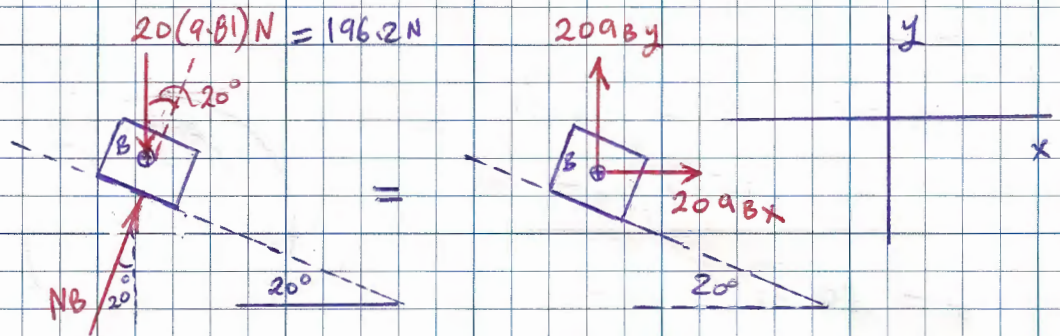 20(9.81)N = 196.2N
20°
B
NB
20°
20°
=
20aBy
B
20aBx
20°
y
x